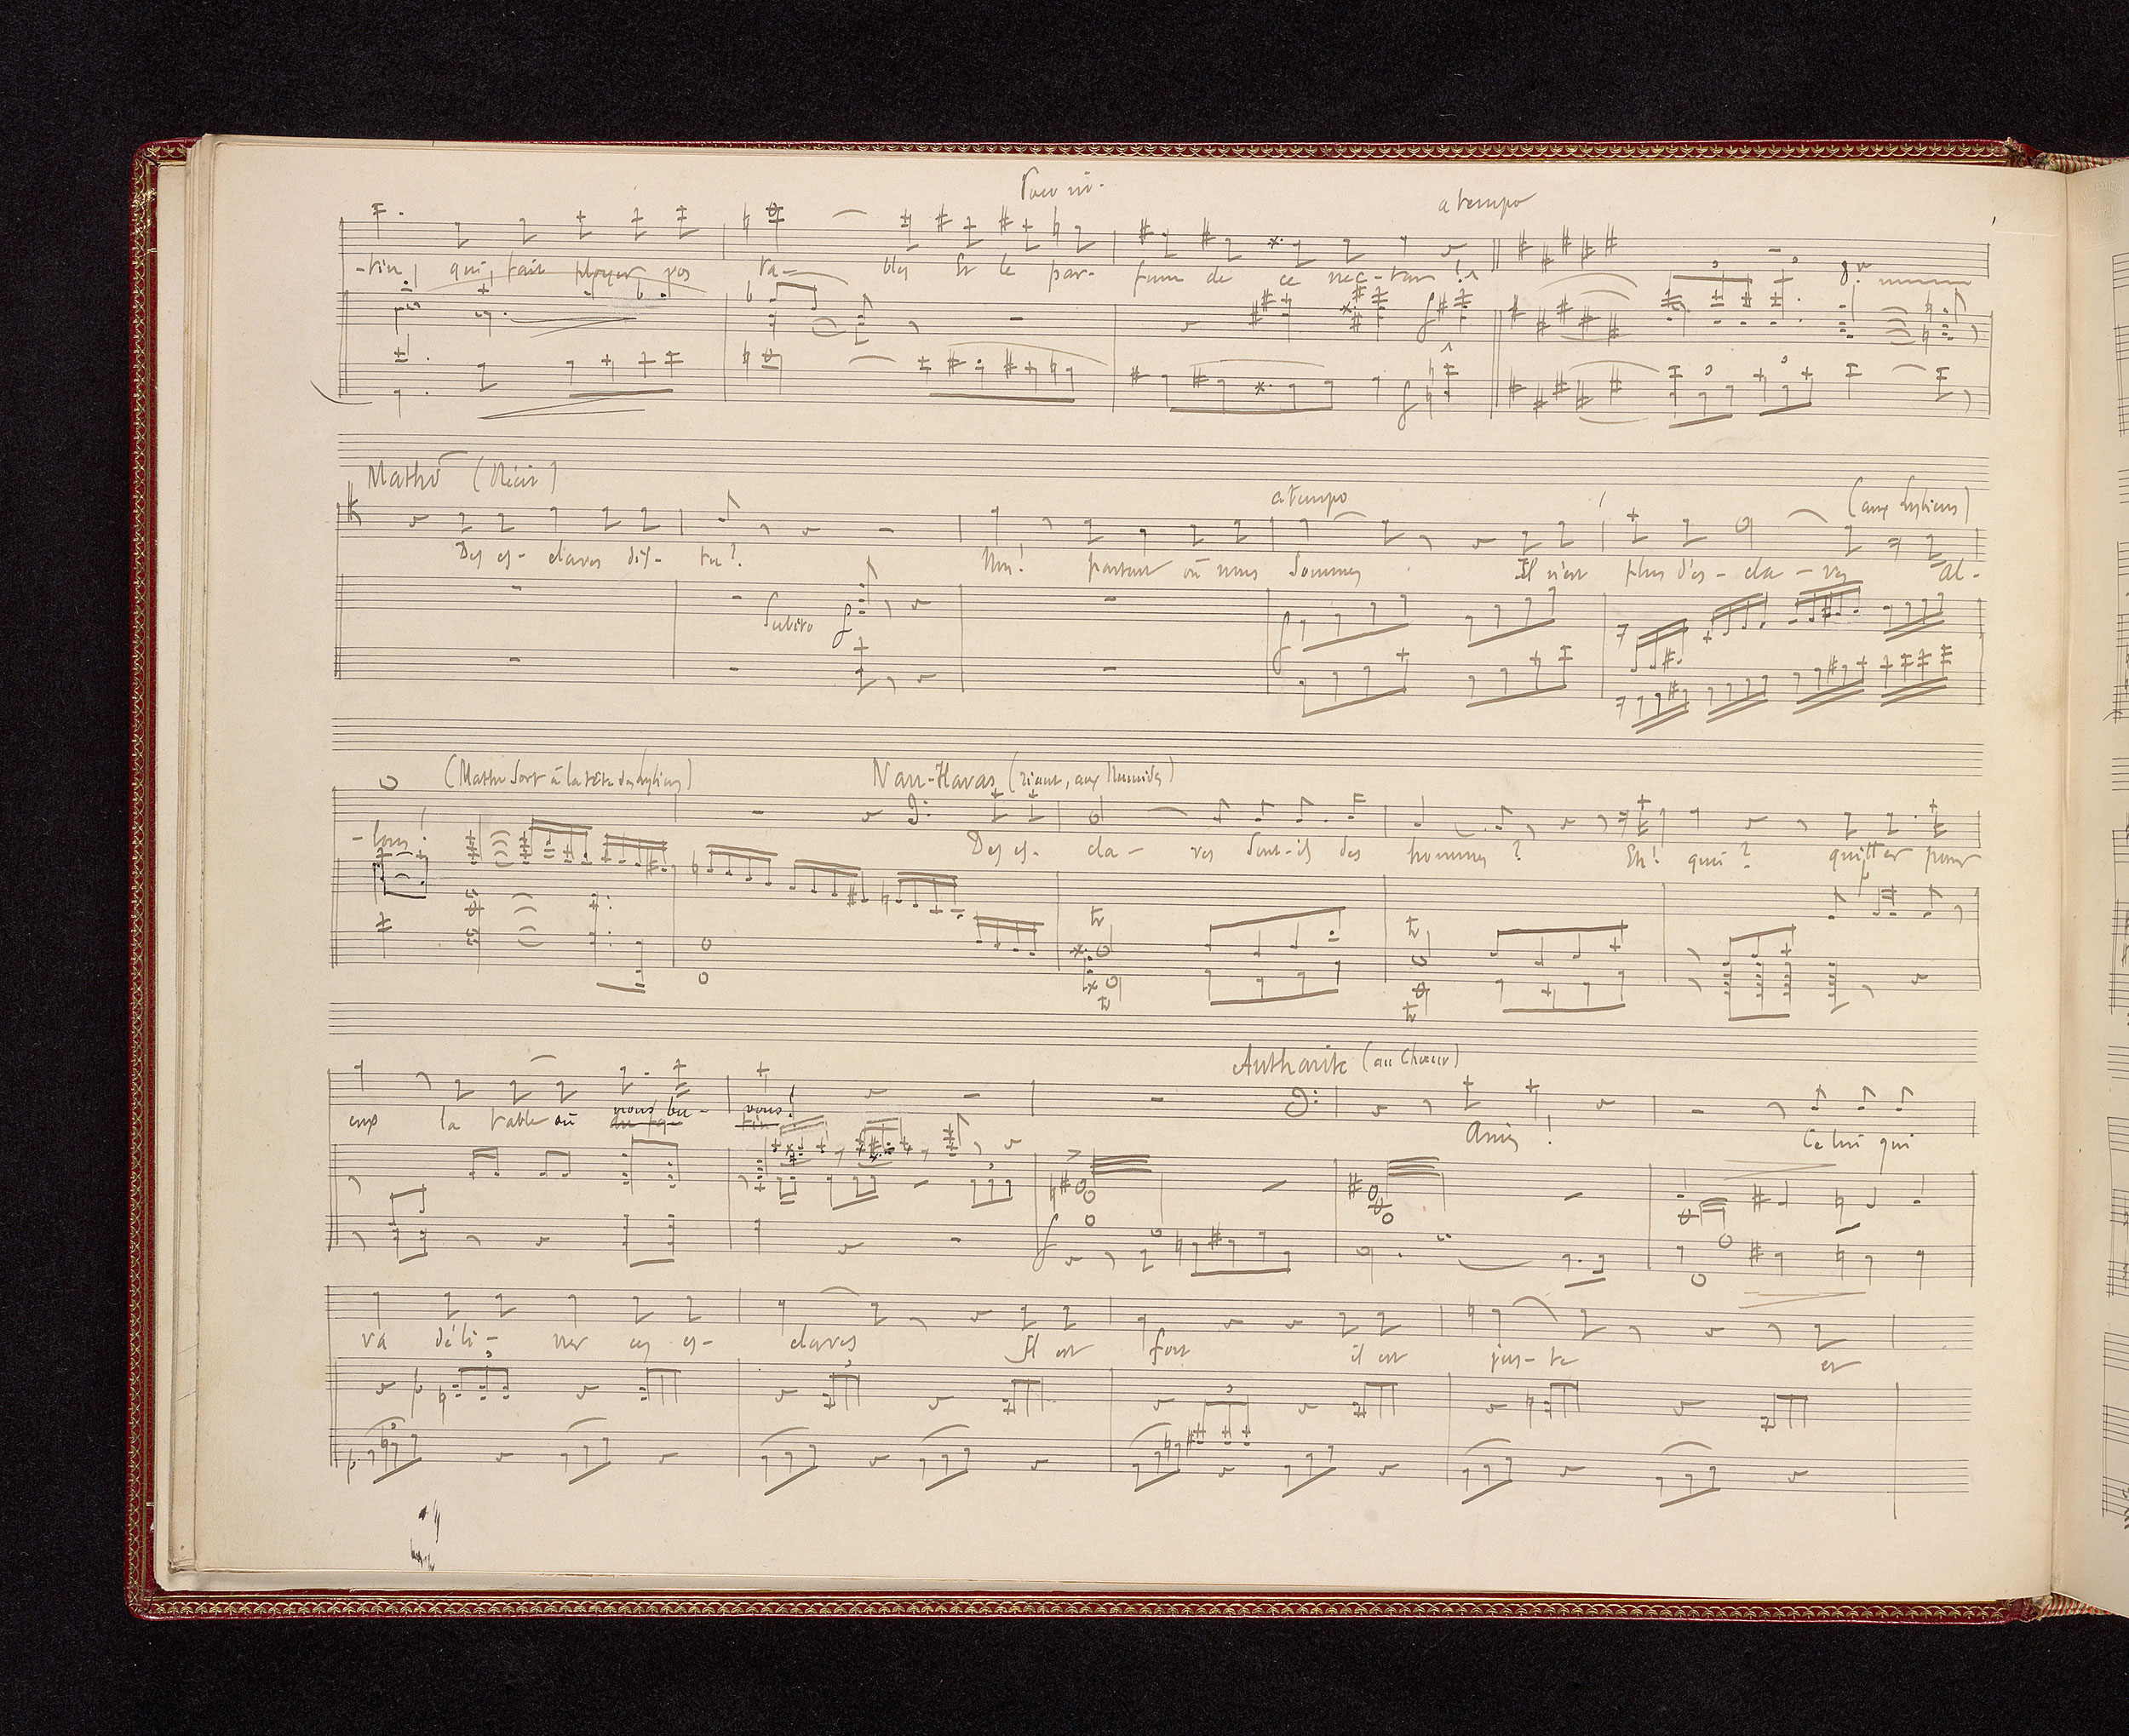 a tempo
-tin, qui, fait ployer vos ta- bles Et le par- fum de ce nec-tar !
8va
Mathô (Récit)
a tempo
(aux Lybiens)
Des es- claves dis- tu? Non! partout où nous sommes Il n'est plus d'es- cla- ves Al-
Subito f
(Mathô sort à la tête des Lybiens)
Narr-Havas (riant, aux Numides)
-lons! Des es- cla- ves sont-ils des hommes? Eh! quoi? quitter pour
Autharite (au Chœur)
eux la table où nous bu- vons! Amis! Celui qui
va déli- vrer ces es- claves Il est fort il est jus- te et